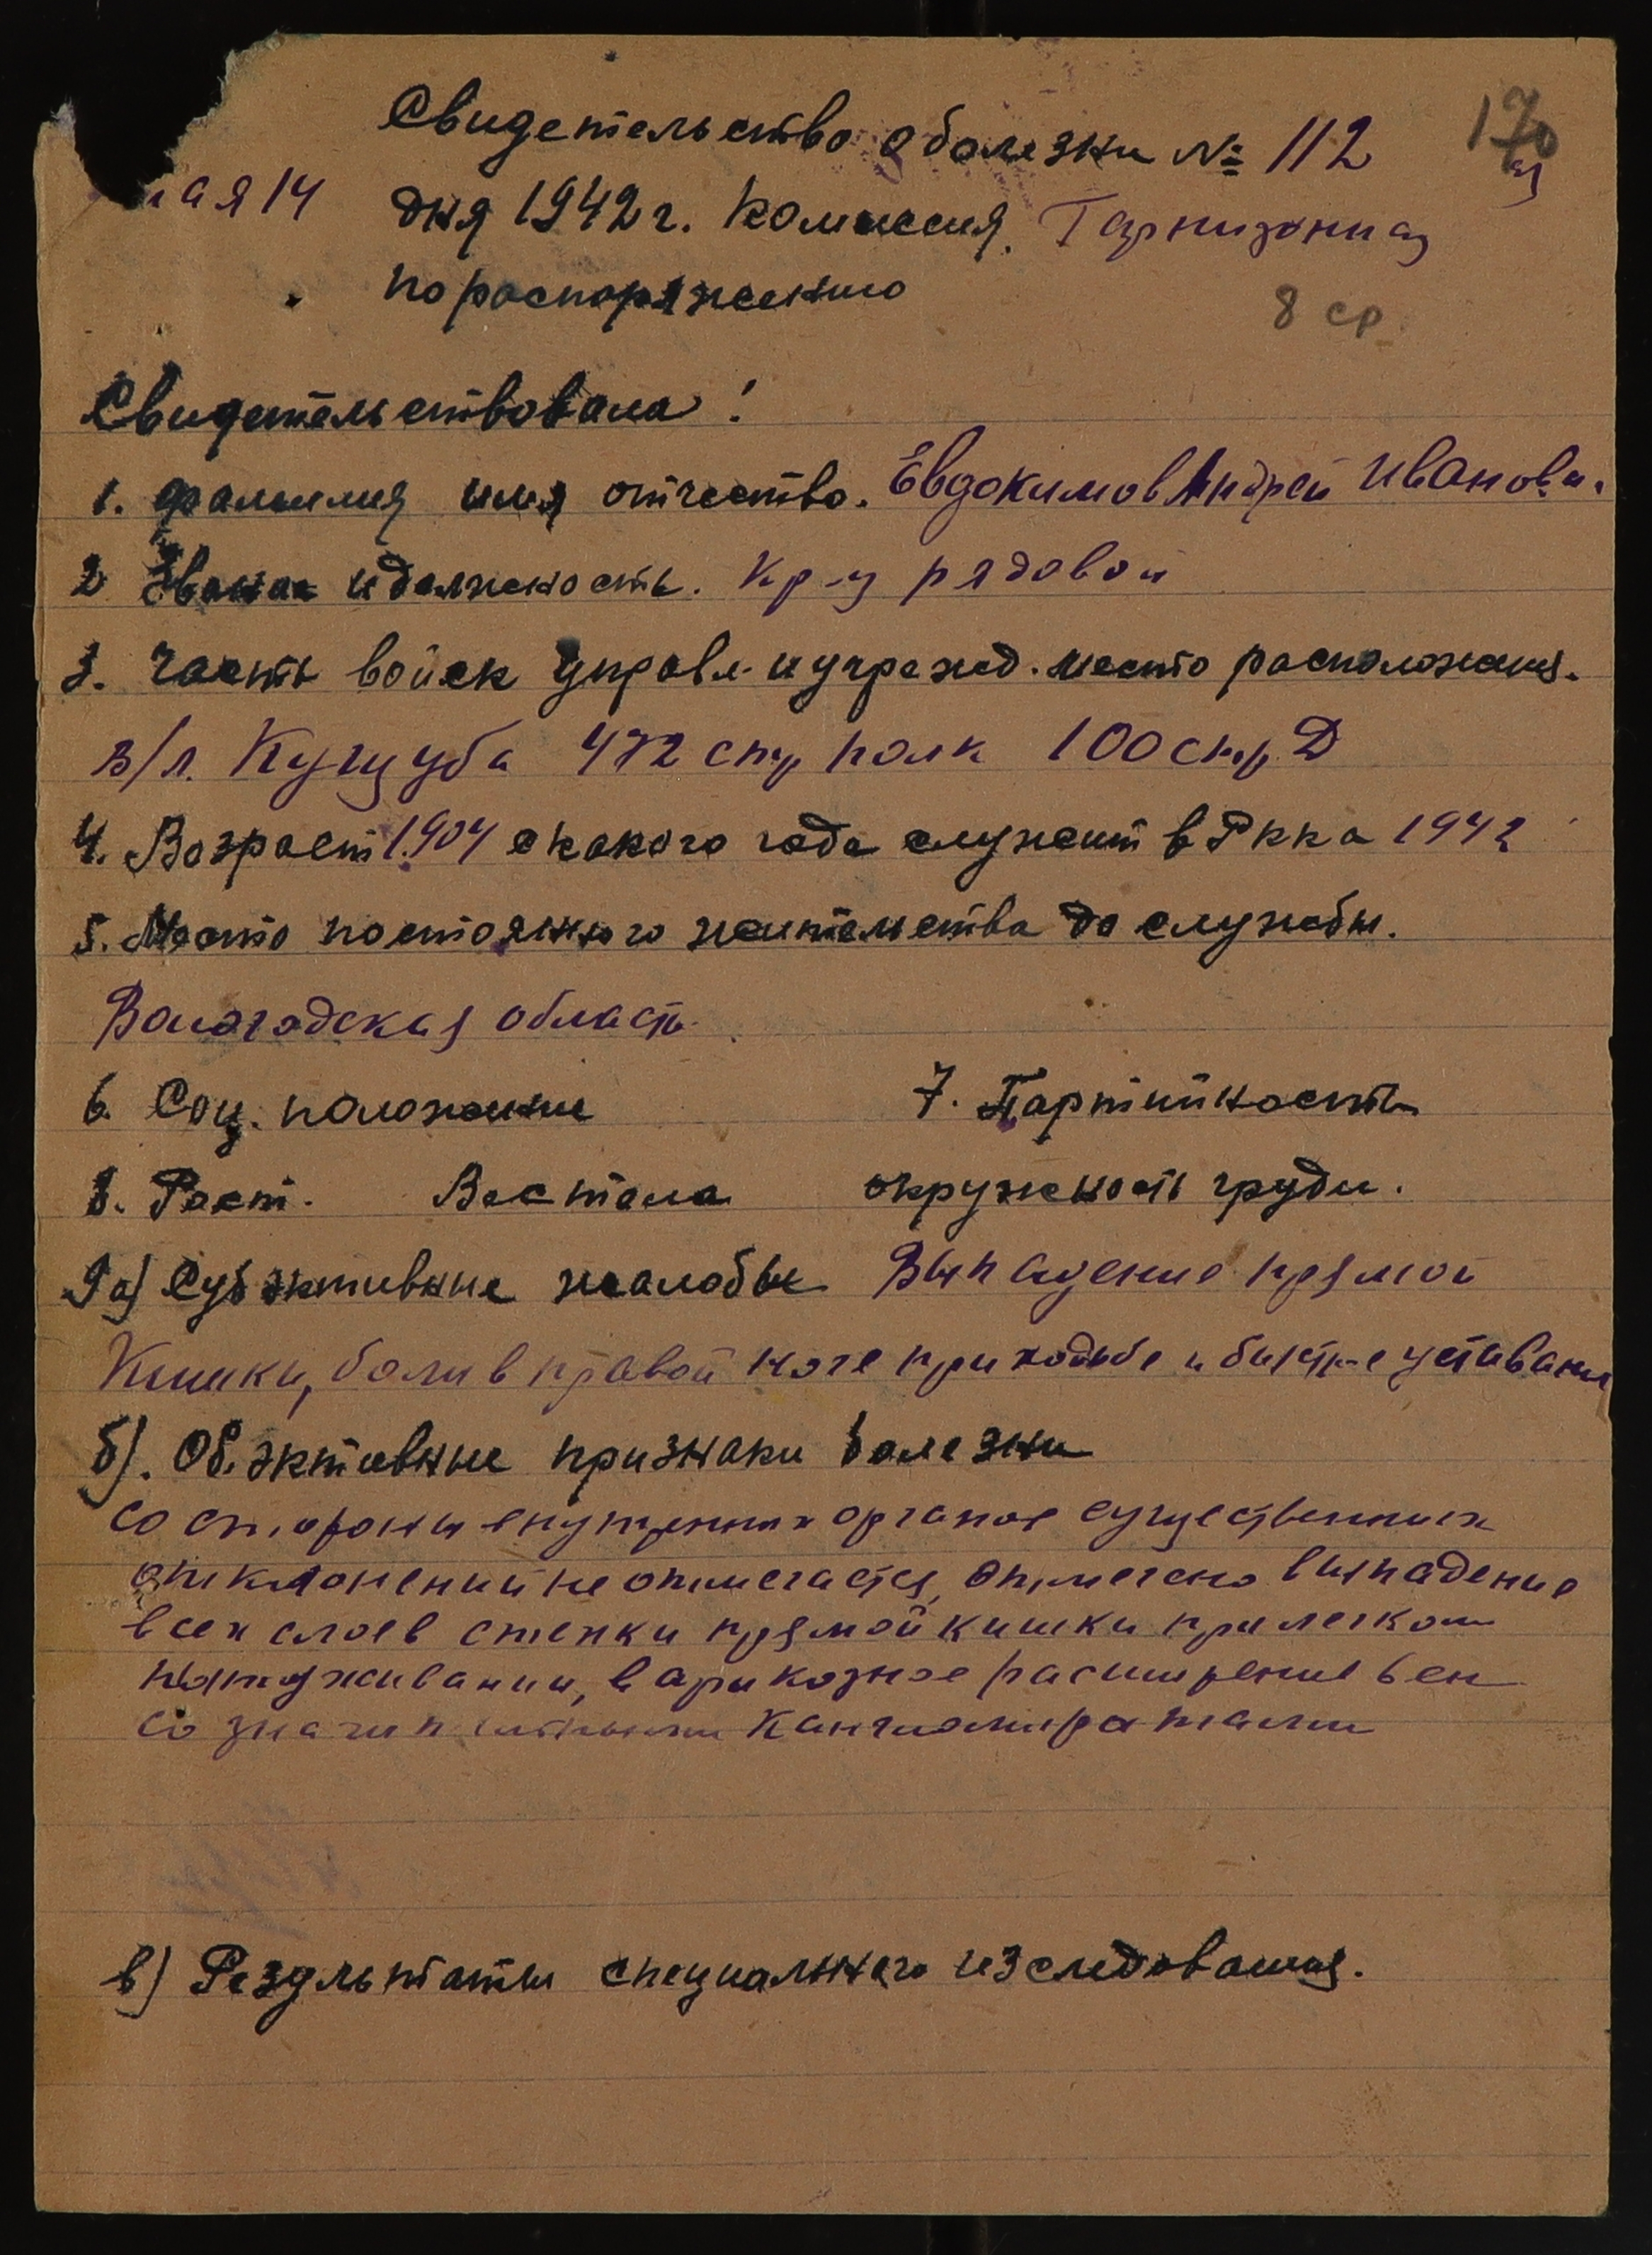 Свидетельство о болезни № 112
170
мая 14 дня 1942 г. Комиссия. Гарнизонная
по распоряжению
8 ср.
Свидетельствовала:
1. фамилия имя отчество. Евдокимов Андрей Иванови.
2 Звание и должность. Кр-ц рядовой
3. Часть войск управл. и учрежд. место расположения.
в/л. Кущуба 472 стр полк 100 стр. Д
4. Возраст 1904 с какого года служит в Ркка 1942
5. Место постоянного жительства до службы.
Вологодская область.
6. Соц. положение 7. Партийность
8. Рост. Вес тела окружность груди.
9 а) Субъэктивные жалобы Выпадение прямой
Кишки, боли в правой ноге при ходьбе и быстрое уставание
б). Об. эктивные признаки болезни
со стороны внутренних органов существенных
отклонений не отмечается, отмечено выпадение
всех слоев стенки прямой кишки при легком
натуживании, варикозное расширение вен
со значительными Конгломератами
в) Результаты специального изследования.